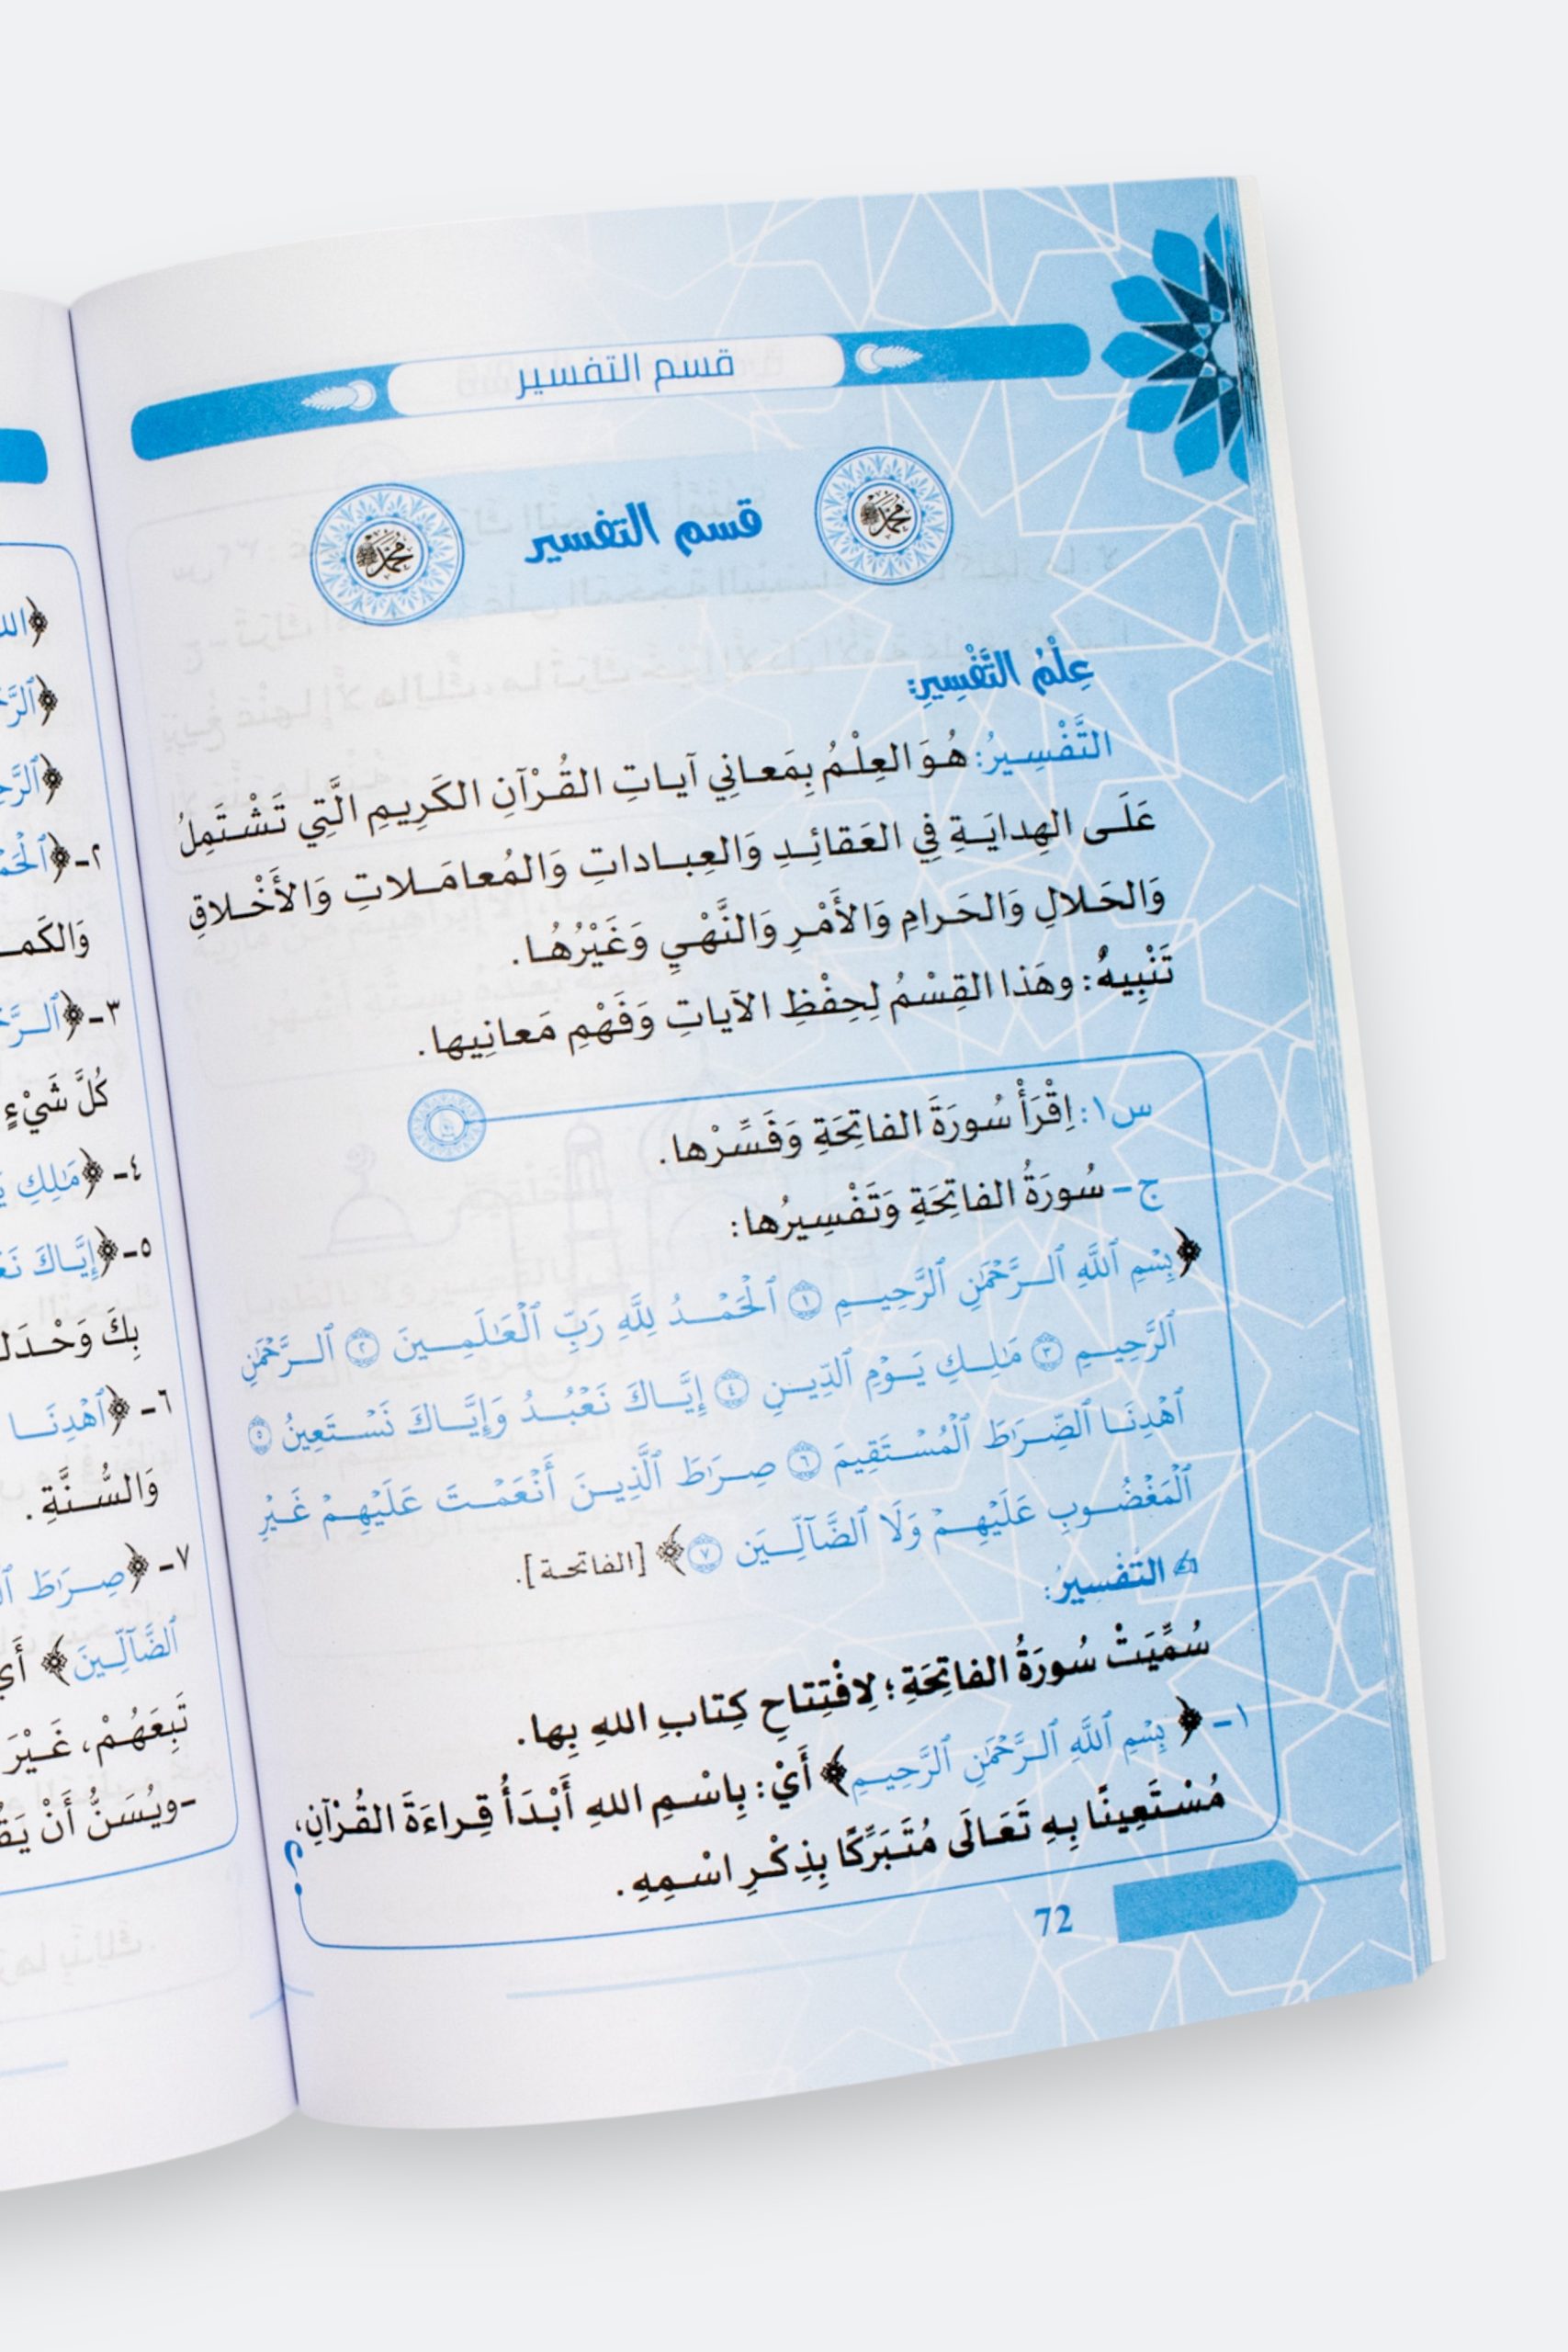 قسم التفسير
قسم التفسير
عِلْمُ التَّفْسِيرِ:
التَّفْسِيرُ: هُوَ العِلْمُ بِمَعانِي آياتِ القُرْآنِ الكَرِيمِ الَّتِي تَشْتَمِلُ
عَلَى الهِدايَةِ فِي العَقائِدِ وَالعِباداتِ وَالمُعامَلاتِ وَالأَخْلاقِ
وَالحَلالِ وَالحَرامِ وَالأَمْرِ وَالنَّهْيِ وَغَيْرُهُا.
تَنْبِيهٌ: وهَذا القِسْمُ لِحِفْظِ الآياتِ وَفَهْمِ مَعانِيها.
س١: اِقْرَأْ سُورَةَ الفاتِحَةِ وَفَسِّرْها.
ج- سُورَةُ الفاتِحَةِ وَتَفْسِيرُها:
﴿بِسْمِ ٱللَّهِ ٱلرَّحْمَٰنِ ٱلرَّحِيمِ ١ ٱلْحَمْدُ لِلَّهِ رَبِّ ٱلْعَٰلَمِينَ ٢ ٱلرَّحْمَٰنِ
ٱلرَّحِيمِ ٣ مَٰلِكِ يَوْمِ ٱلدِّينِ ٤ إِيَّاكَ نَعْبُدُ وَإِيَّاكَ نَسْتَعِينُ ٥
ٱهْدِنَا ٱلصِّرَٰطَ ٱلْمُسْتَقِيمَ ٦ صِرَٰطَ ٱلَّذِينَ أَنْعَمْتَ عَلَيْهِمْ غَيْرِ
ٱلْمَغْضُوبِ عَلَيْهِمْ وَلَا ٱلضَّآلِّينَ ٧﴾ [الفاتحة].
التَّفْسِيرُ:
سُمِّيَتْ سُورَةُ الفاتِحَةِ؛ لِافْتِتاحِ كِتابِ اللهِ بِها.
١- ﴿بِسْمِ ٱللَّهِ ٱلرَّحْمَٰنِ ٱلرَّحِيمِ﴾ أَيْ: بِاسْمِ اللهِ أَبْدَأُ قِراءَةَ القُرْآنِ،
مُسْتَعِينًا بِهِ تَعَالَى مُتَبَرِّكًا بِذِكْرِ اسْمِهِ.
72
٢- ﴿
٣- ﴿
كُلَّ شَيْءٍ
٤- ﴿مَٰلِكِ
٥- ﴿إِيَّاكَ
بِكَ
٦- ﴿ٱهْدِنَا
وَالسُّنَّةِ.
٧- ﴿صِرَٰطَ
ٱلضَّآلِّينَ﴾
تَبِعَهُمْ، غَيْرَ
-ويُسَنُّ أَنْ